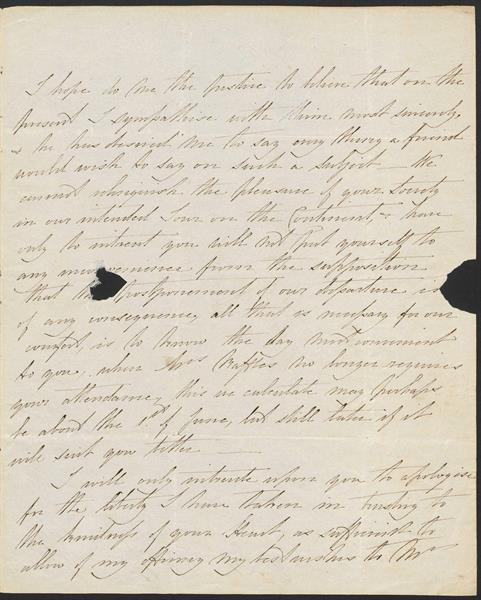 I hope do me the justice to believe that on the
present I sympathise with him most sincerely,
& he has desired me to say every thing a friend
would wish to say on such a subject – We
cannot relinquish the pleasure of your society
in our intended Tour on the Continent, & have
only to intreat you will not put yourself to
any inconvenience from the supposition
that the postponement of our departure is
of any consequence, all that is necessary for our
comfort, is to know the day most convenient
to you, when Mrs Raffles no longer requires
your attendance, this we calculate may perhaps
be about the 1st of June, but still later if it
will suit you better —
I will only intrude upon you to apologise
for the liberty I have taken in trusting to
the kindness of your Heart, as sufficient to
allow of my offering my best wishes to Mrs